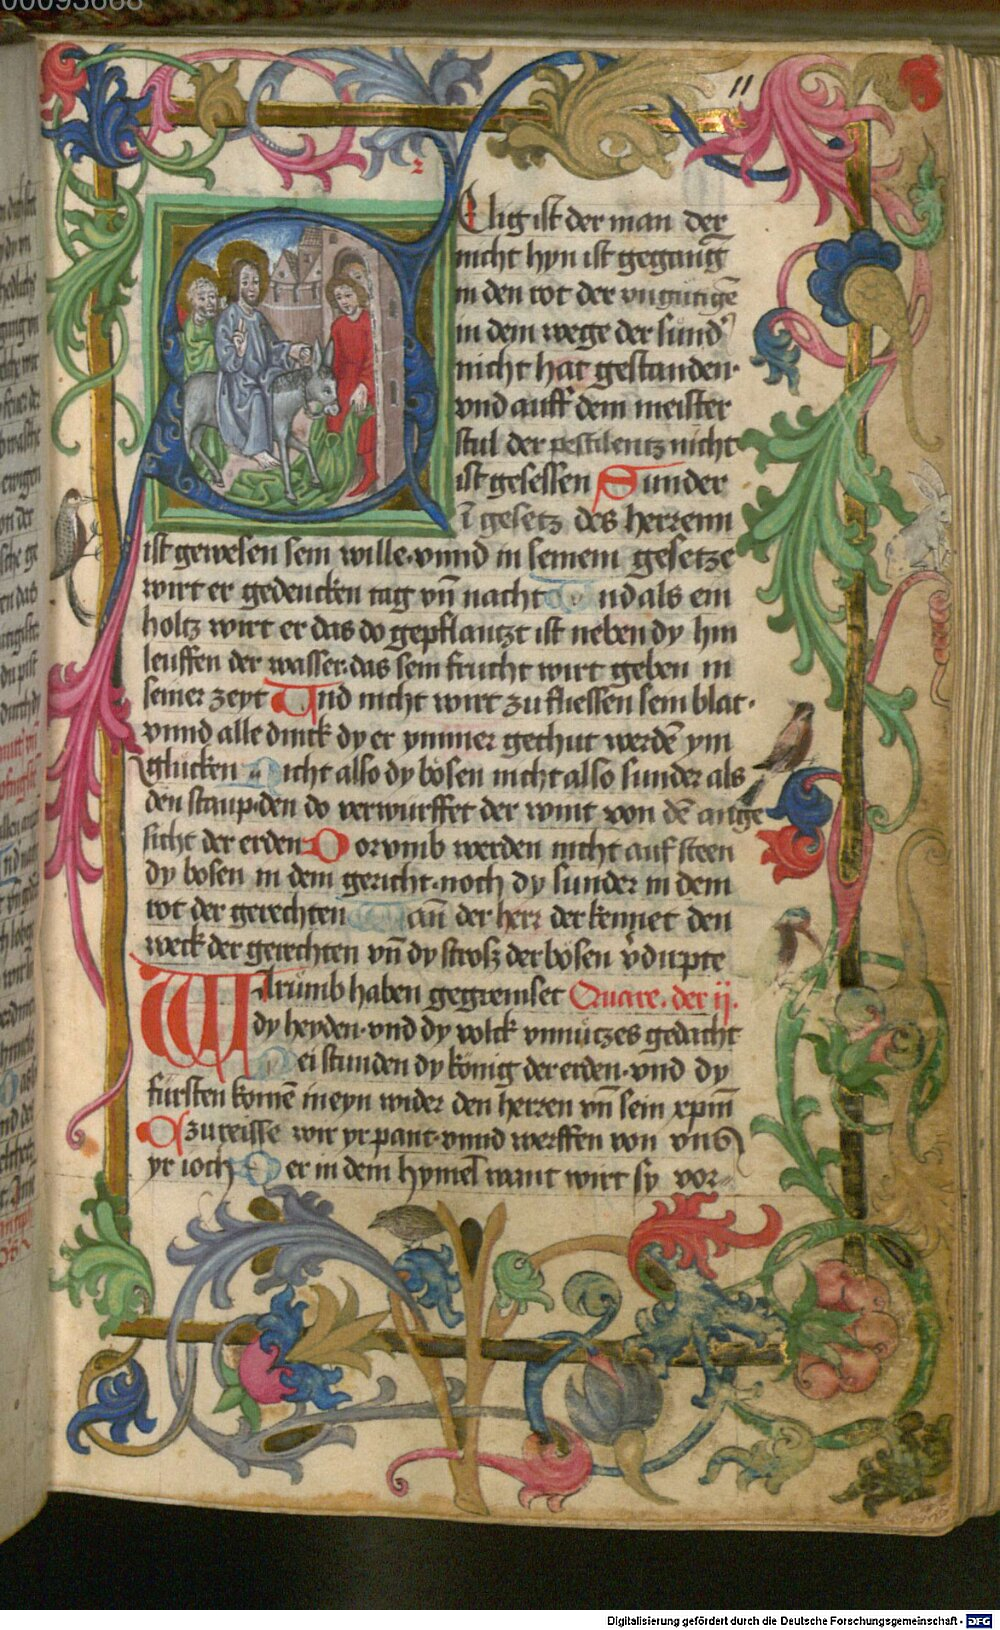 00093668
11
2
Elig ist der man der
nicht hyn ist geganḡ
in den rot der vngutigē
in dem wege der sund᷑
nicht hat gestanden·
vnd auff dem meister
stul der pestilentz nicht
ist gesessen Sunder
ī gesetz des herrenn
ist gewesen sein wille·vnnd in seinem gesetze
wirt er gedencken tag vn̄ nacht Vnd als ein
holtz wirt er das do gepflantzt ist neben dy hin
leuffen der wasser·das sein frucht wirt geben in
seiner zeyt Vnd nicht wirt zu fliessen sein blat·
vnnd alle dinck dy er ymmer gethut werdē ym
glucken Nicht also dy bosen nicht also sunder als
den staup·den do verwurffet der wint von dē ange
sicht der erden Dorvmb werden nicht auf steen
dy bosen in dem gericht·noch dy sunder in dem
rot der gerechten Wan̄ der herr der kennet den
weck der gerechten vn̄ dy stross der bosen v̄dirpte
Warumb haben gegremset Quare. der ij.
dy heyden·vnd dy volck vnnutzes gedacht
Bei stunden dy konig der erden·vnd dy
fursten komē in eyn wider den herren vn̄ sein xpm̄
Czureisse wir yr pant·vnnd werffen von vns
yr ioch Der in dem hymel want wirt sy vor-
Digitalisierung gefördert durch die Deutsche Forschungsgemeinschaft - DFG